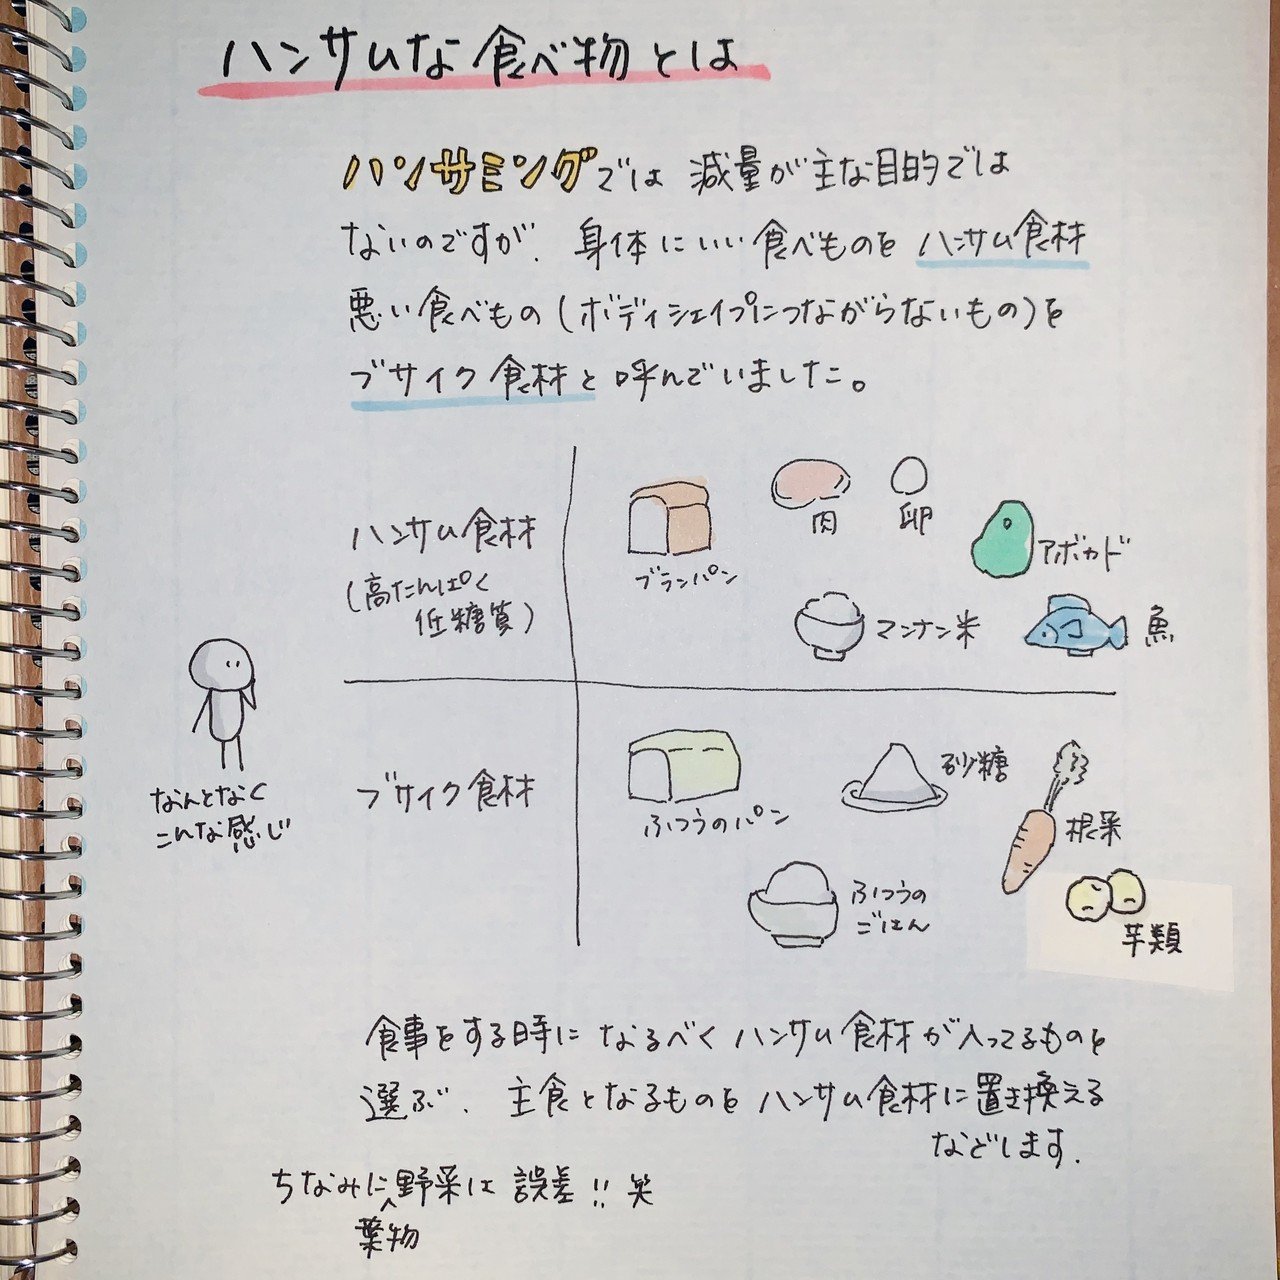 ハンサムな食べ物とは
ハンサミングでは 減量が主な目的では
ないのですが、身体にいい食べものを ハンサム食材
悪い食べもの(ボディシェイプにつながらないもの)を
ブサイク食材と呼んでいました。
ハンサム食材
(高たんぱく
低糖質)
ブランパン
肉
卵
アボカド
マンナン米
魚
なんとなく
こんな感じ
ブサイク食材
ふつうのパン
砂糖
根菜
ふつうの
ごはん
芋類
食事をする時に なるべく ハンサム食材が入ってるものを
選ぶ、主食となるものを ハンサム食材に置き換える
などします.
ちなみに葉物野菜は 誤差!! 笑